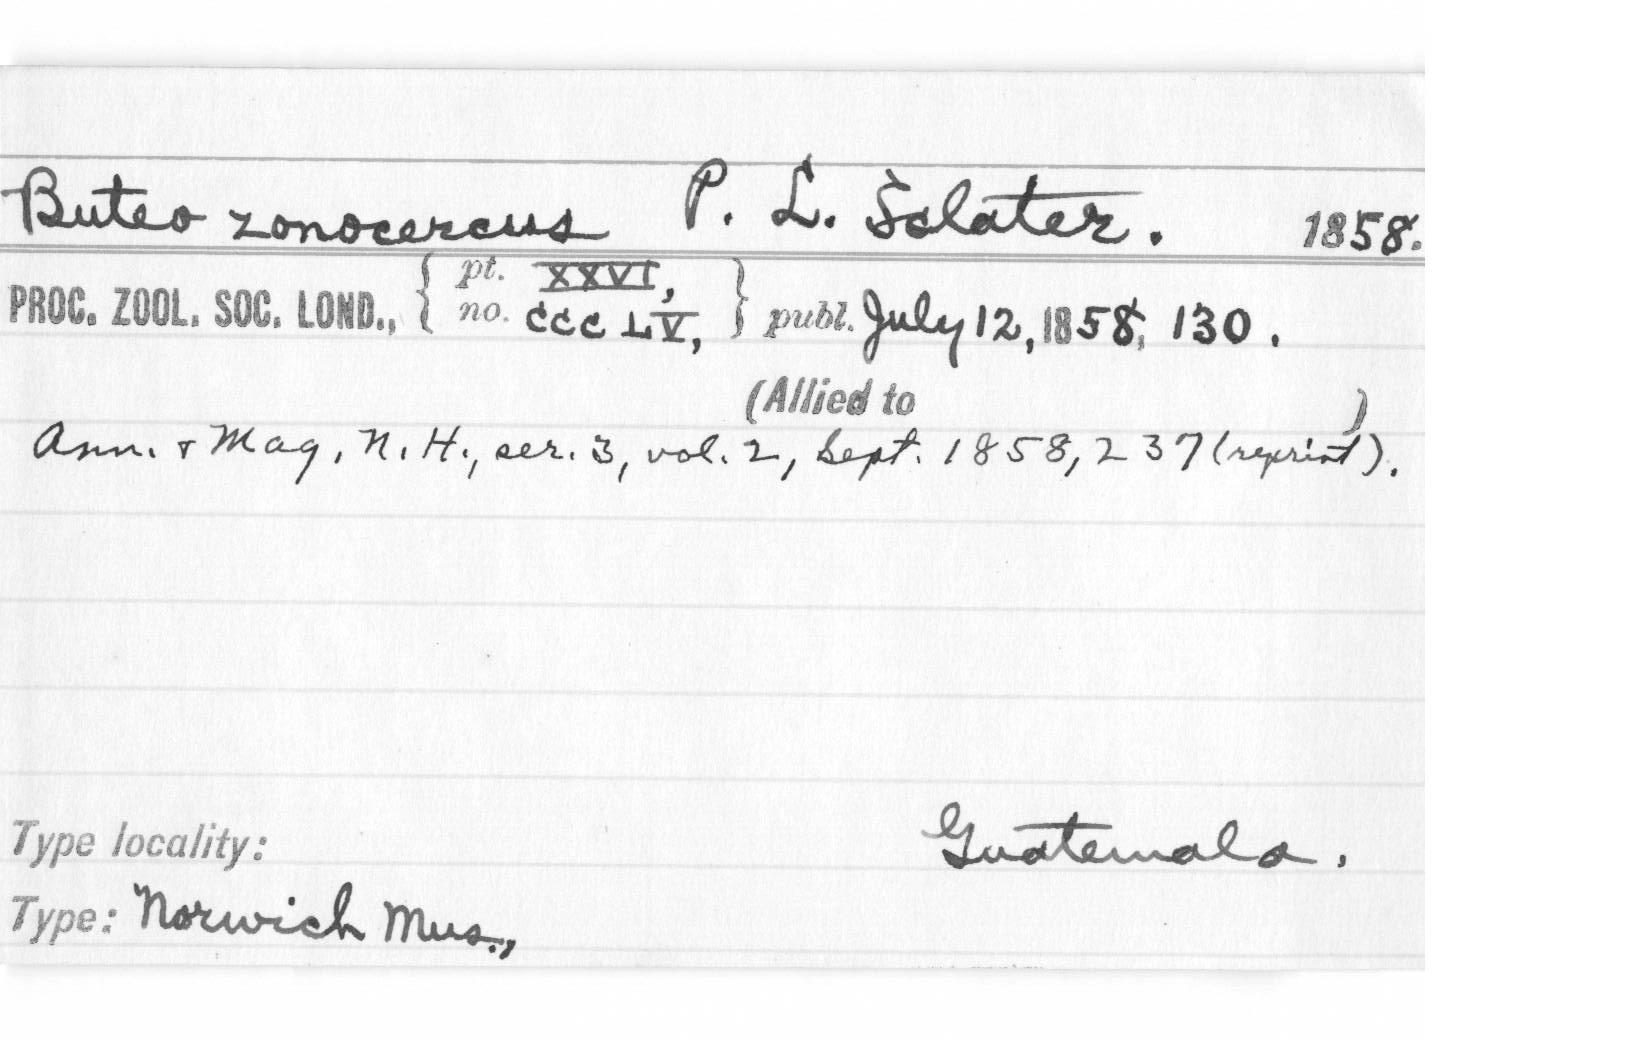 Buteo zonocercus P. L. Sclater. 1858.
PROC. ZOOL. SOC. LOND., { pt. XXVI, no. CCCLV, } publ. July 12, 1858, 130.
(Allied to )
Ann. & Mag. N. H., ser. 3, vol. 2, Sept. 1858, 237 (reprint).
Type locality: Guatemala.
Type: Norwich Mus.,